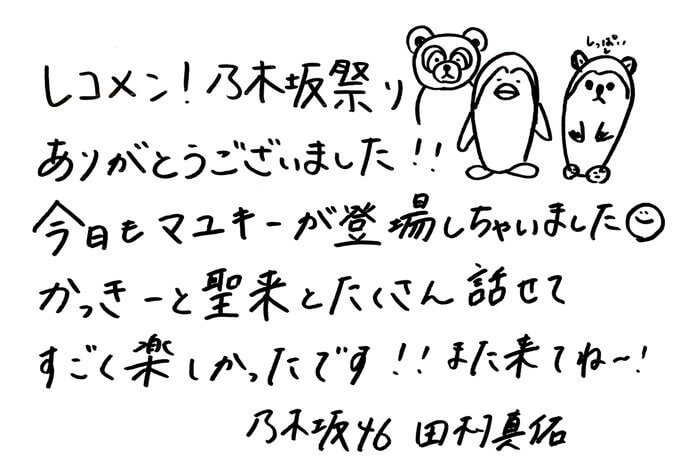 しっぱい
レコメン！乃木坂祭り
ありがとうございました!!
今日もマユキーが登場しちゃいました
かっきーと聖来とたくさん話せて
すごく楽しかったです!!また来てね〜!
乃木坂46 田村真佑